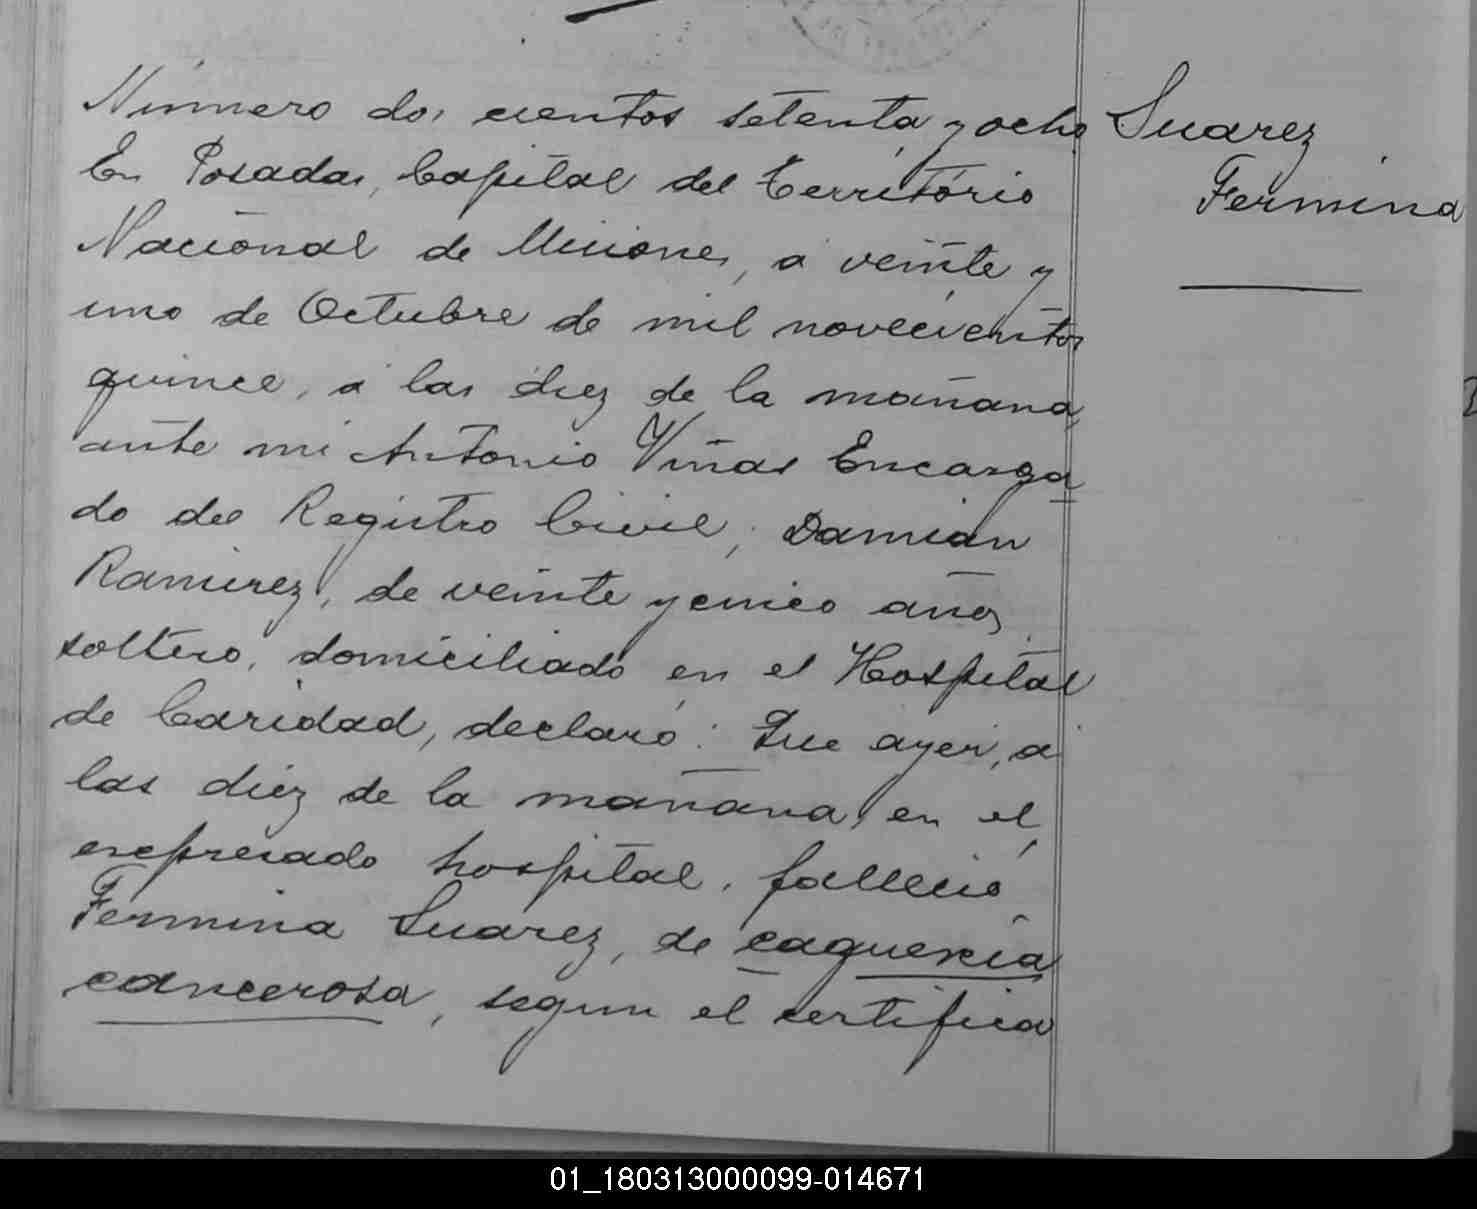 Número dos cientos setenta y ocho
Suarez
Fermina
En Posadas, Capital del Territorio
Nacional de Misiones, á veinte y
uno de Octubre de mil novecientos
quince, á las diez de la mañana,
ante mi Antonio Viñas Encarga
do del Registro Civil, Damian
Ramirez, de veinte y cinco años,
soltero, domiciliado en el Hospital
de Caridad, declaró: Que ayer, á
las diez de la mañana, en el
expresado hospital, falleció
Fermina Suarez, de caquexia
cancerosa, segun el certifica
01_180313000099-014671